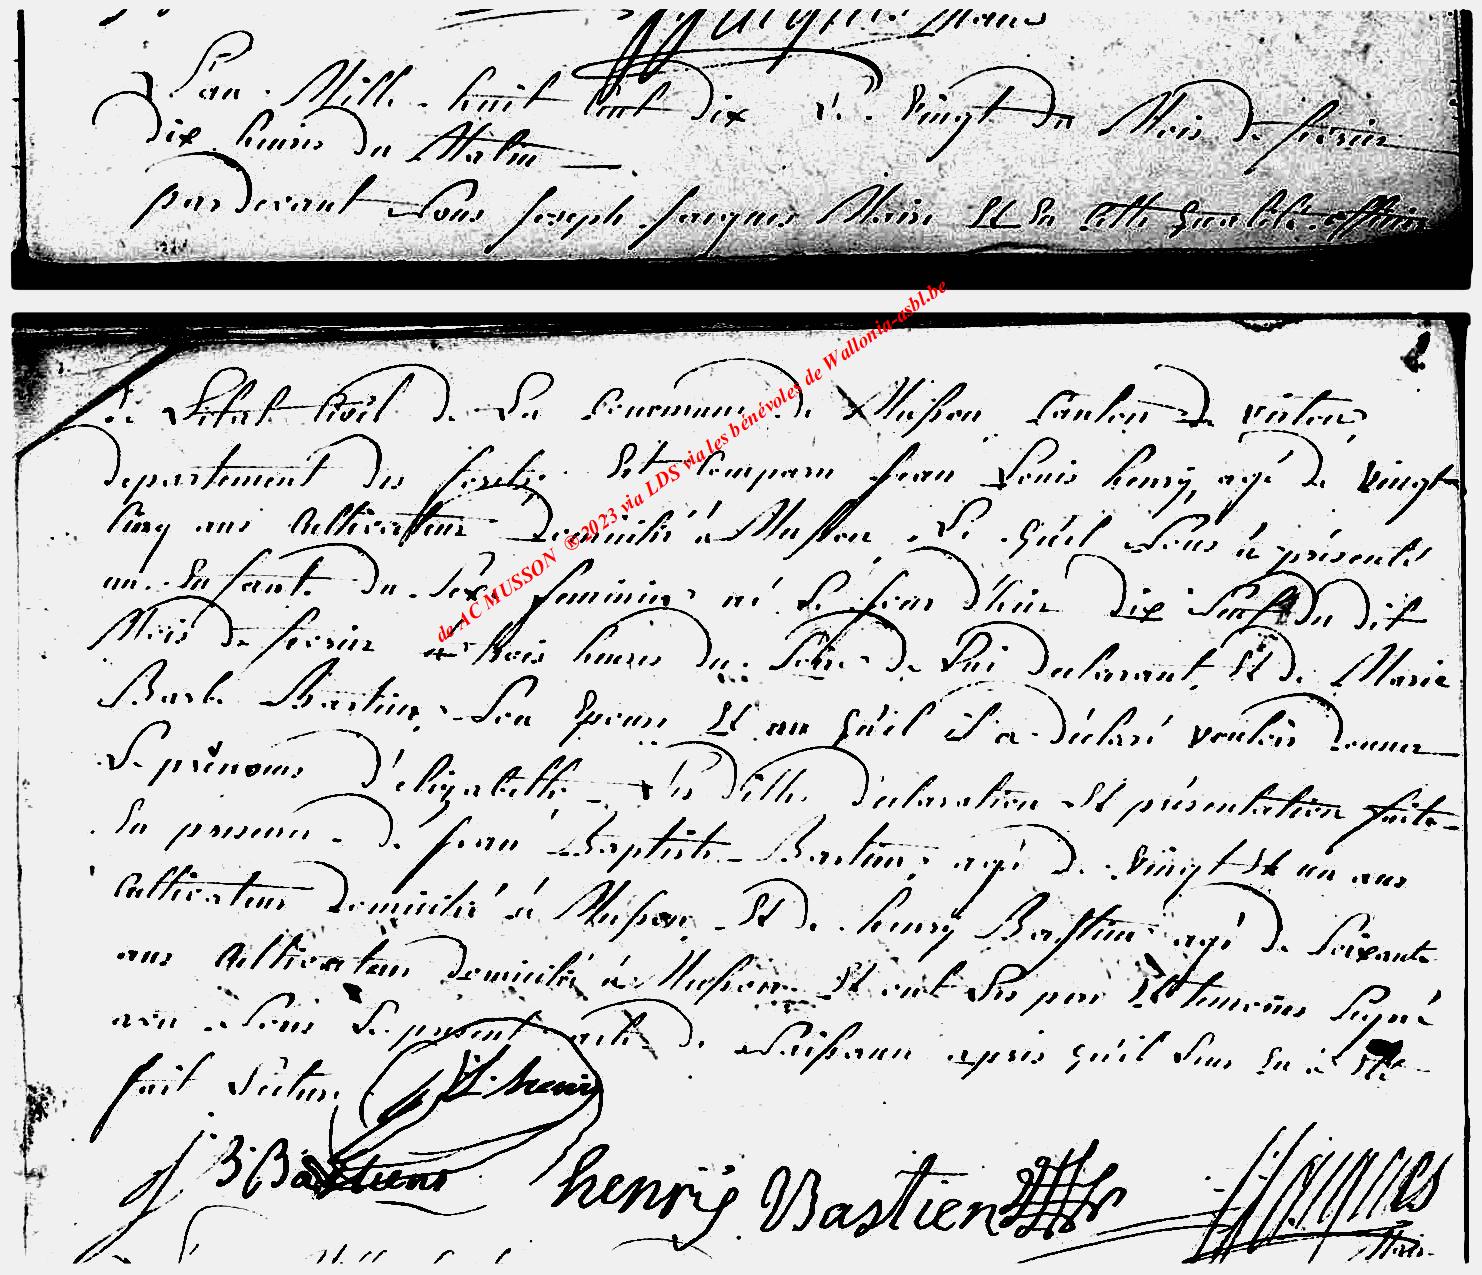 Jacques Maire
L'an Mille huit Cent dix Le Vingt du Mois de fevrier
dix heures du Matin
pardevant Nous Joseph Jacques Maire Et En Cette qualité officier
de L'Etat Civil de La Commune de Musson Canton de virton
departement des forets Est Comparu Jean Louis henry, agé de Vingt
Cinq ans Cultivateur domicilié à Musson Le quel Nous à présenté
un Enfant du Sexe feminin né Le Jour d'hier dix Neuf du dit
Mois de fevrier à trois heures du Soir de Lui declarant Et de Marie
Barbe Bastien Son Epouse Et au quel il a déclaré vouloir donner
Le prénoms d'elizabethe Les dittes déclaration Et présentation faite
En presence de Jean Baptiste Bastien, agé de Vingt Et un ans
Cultivateur domicilié à Musson Et de henry Bastien agé de Soixante
ans Cultivateur domicilié à Musson Et ont Les pere Et temoins Signé
avec Nous Le present acte de Naissance apres qu'il Leur En à Eté
fait Lecture
JL henry
J B Bastiens henrÿ Bastien Jacques
Maire
de AC MUSSON ®2023 via LDS via les bénévoles de Wallonia-asbl.be